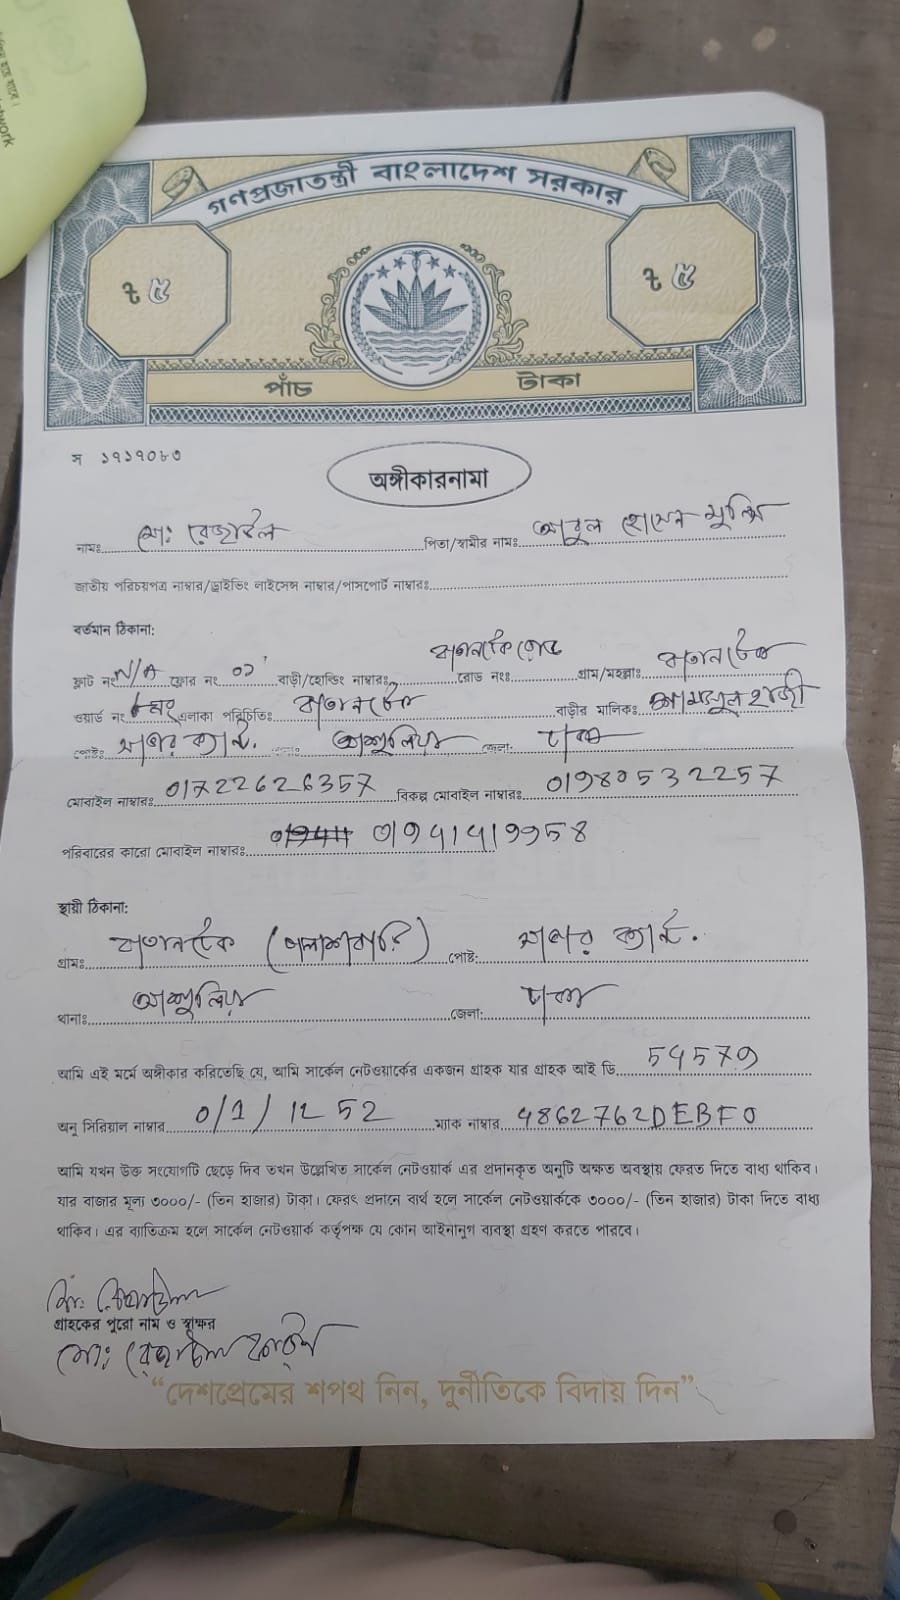 work
গণপ্রজাতন্ত্রী বাংলাদেশ সরকার
৳ ৫ ৳ ৫
পাঁচ টাকা
স ১৭১৭০৮৩
অঙ্গীকারনামা
নামঃ মোঃ রেজাউল পিতা/স্বামীর নামঃ আবুল হোসেন মুন্সি
জাতীয় পরিচয়পত্র নাম্বার/ড্রাইভিং লাইসেন্স নাম্বার/পাসপোর্ট নাম্বারঃ
বর্তমান ঠিকানা:
ফ্লাট নং N/A ফ্লোর নং ০১ বাড়ী/হোল্ডিং নাম্বারঃ রোড নংঃ গ্রাম/মহল্লাঃ
ওয়ার্ড নং এলাকা পরিচিতিঃ বাড়ীর মালিকঃ হাজী
আশুলিয়া জেলা: ঢাকা
মোবাইল নাম্বারঃ 01722626357 বিকল্প মোবাইল নাম্বারঃ 01980532257
পরিবারের কারো মোবাইল নাম্বারঃ
স্থায়ী ঠিকানা:
গ্রামঃ (পলাশবাড়ি) পোষ্ট:
থানাঃ আশুলিয়া জেলা: ঢাকা
আমি এই মর্মে অঙ্গীকার করিতেছি যে, আমি সার্কেল নেটওয়ার্কের একজন গ্রাহক যার গ্রাহক আই ডি
অনু সিরিয়াল নাম্বার 0/1/ 12 52 ম্যাক নাম্বার 4862762DEBF0
আমি যখন উক্ত সংযোগটি ছেড়ে দিব তখন উল্লেখিত সার্কেল নেটওয়ার্ক এর প্রদানকৃত অনুটি অক্ষত অবস্থায় ফেরত দিতে বাধ্য থাকিব।
যার বাজার মূল্য ৩০০০/- (তিন হাজার) টাকা। ফেরৎ প্রদানে ব্যর্থ হলে সার্কেল নেটওয়ার্ককে ৩০০০/- (তিন হাজার) টাকা দিতে বাধ্য
থাকিব। এর ব্যতিক্রম হলে সার্কেল নেটওয়ার্ক কর্তৃপক্ষ যে কোন আইনানুগ ব্যবস্থা গ্রহণ করতে পারবে।
গ্রাহকের পুরো নাম ও স্বাক্ষর
মোঃ রেজাউল
“দেশপ্রেমের শপথ নিন, দুর্নীতিকে বিদায় দিন”